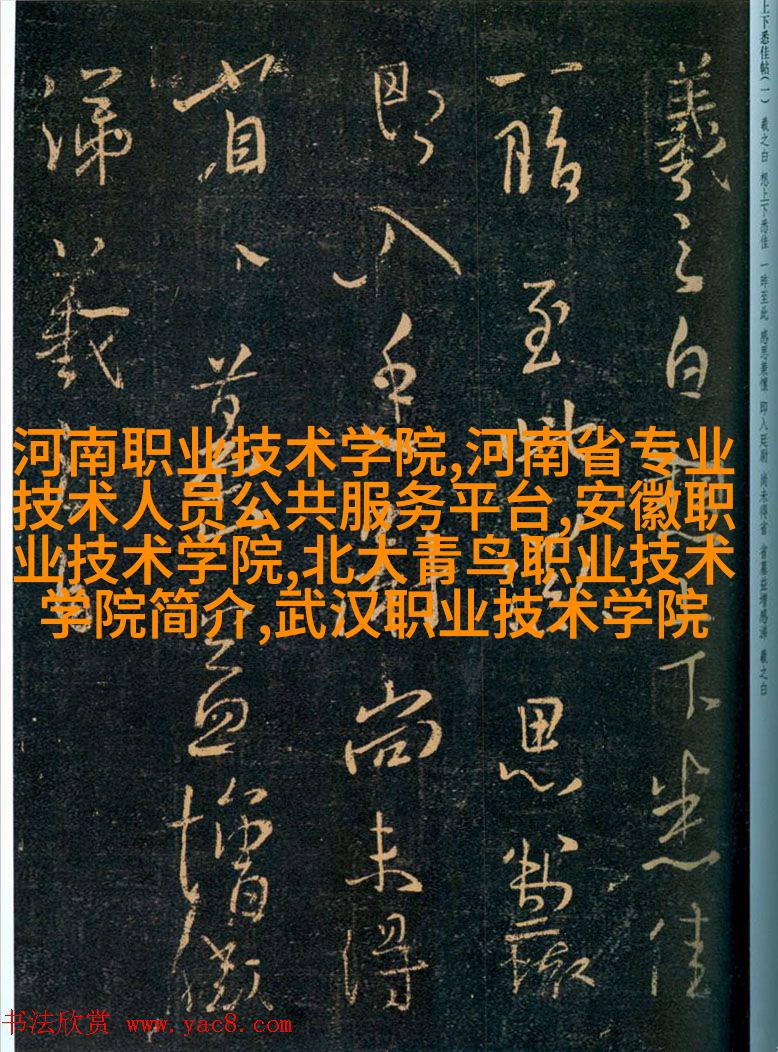 上下悉佳帖(一) 羲之白 想上下悉佳 一昨至此 感思兼 即入廷尉 尚未得省 省墓益增感涕 羲之白
羲之白上下悉佳
一至此思
即入尚未得
省〻墓益增感
涕羲
河南职业技术学院,河南省专业
技术人员公共服务平台,安徽职
业技术学院,北大青鸟职业技术
学院简介,武汉职业技术学院
书法欣赏 www.yac8.com